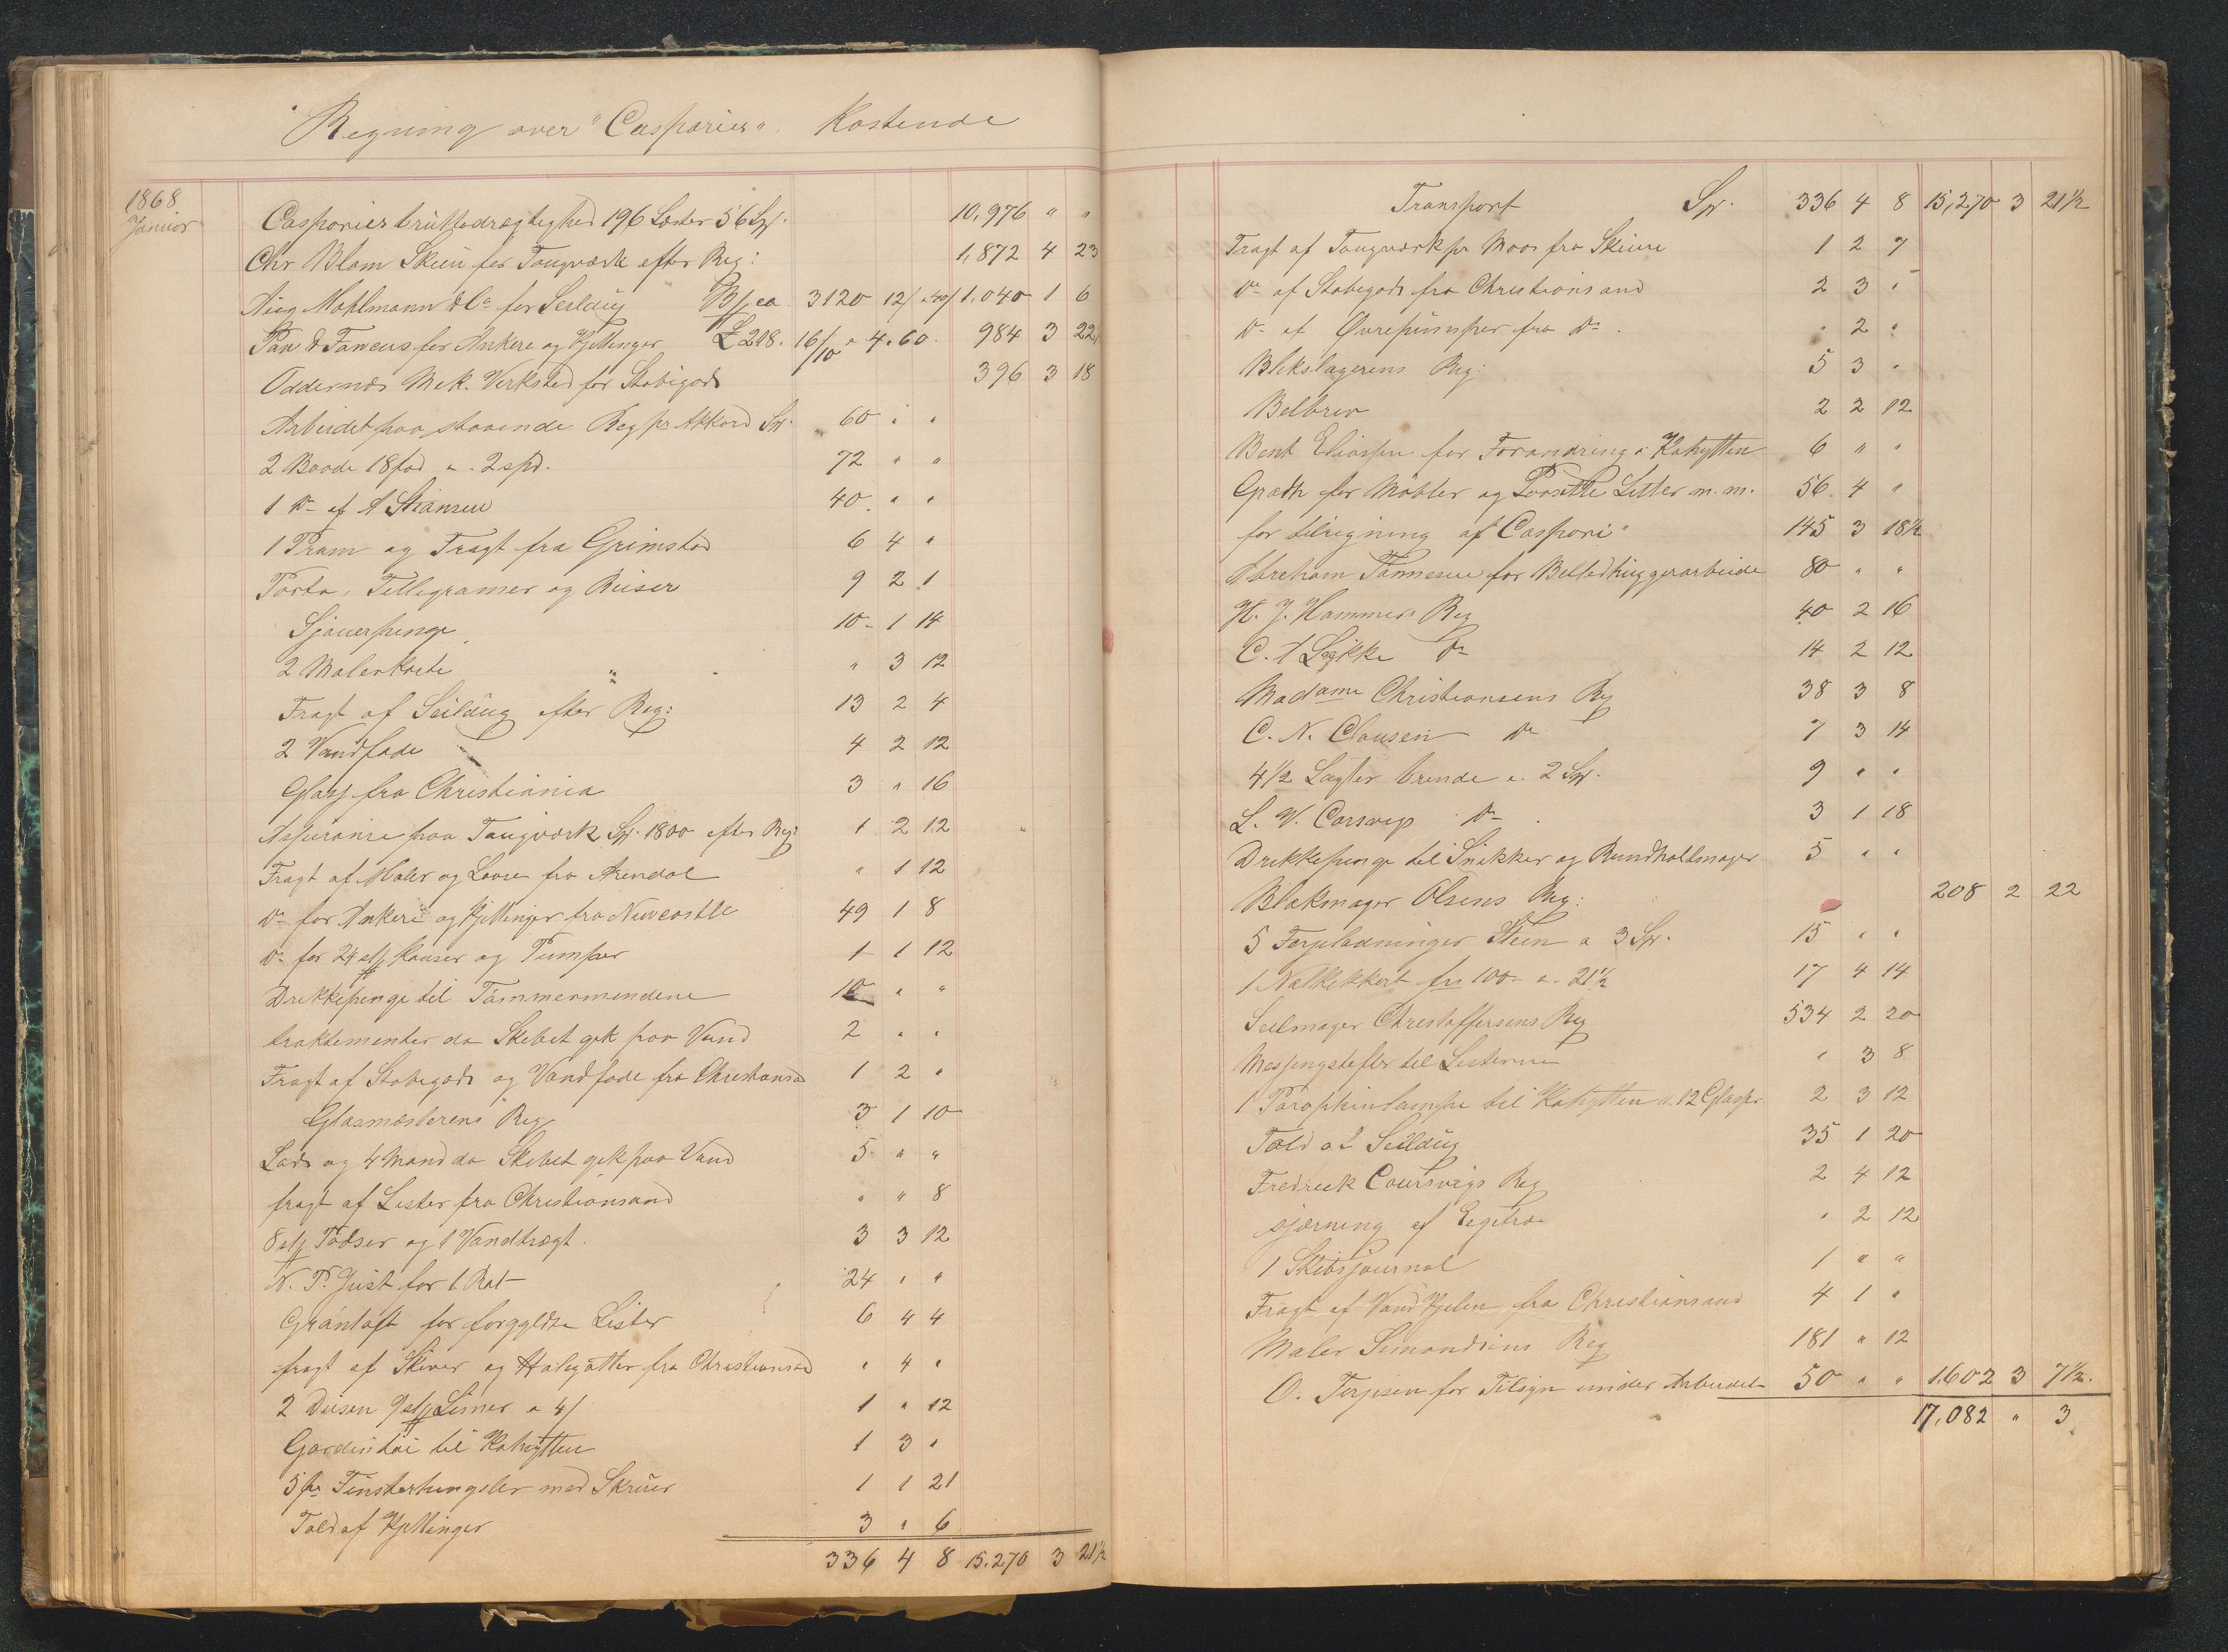 Regning over "Casparies" Kostende
1868
Januar
Casparies bruttodrægtighed 196 Læster 56 Sp. 10,976 " "
Chr Blom Skien for Tougværk efter Reg: 1,872 4 23
Aug Mohlmann & Co for Seildug B/co 3120 12/ 1,040 1 6
for Ankere og Kjettinger £ 218. 16/10 a 4.60. 984 3 22
Oddernæs Mek. Verksted for Stobigods 396 3 18
Arbeidet paa staaende Reg pr Akkord Sp. 60 " "
2 Baade 18 fod a. 2 spd. 72 " "
1 Do af A Stiansen 40 " "
1 Pram og Fragt fra Grimstad 6 4 "
Porto, Tellegramer og Reiser 9 2 1
Sjouerpenge 10 - 1 14
2 Malerkoste " 3 12
Fragt af Seildug efter Reg: 13 2 4
2 Vandfade 4 2 12
Glass fra Christiania 3 " 16
Assurance paa Tougværk Sp. 1800 efter Reg: 1 2 12
Fragt af Maler og Laase fra Arendal " 1 12
Do for Ankere og Kjettinger fra Newcastle 49 1 8
Do for 24 stk Kauser og Pumper 1 1 12
Drikkepenge til Tømmermendene 10 " "
traktementer da Skibet gik paa Vand 2 " "
Fragt af Stobegods og Vandfade fra Christiansa 1 2 "
Glasmæsterens Reg 3 1 10
Lods og 4 Mand da Skibet gik paa Vand 5 " "
fragt af Lister fra Christiansand " " 8
8 stk Tødser og 1 Vandtragt. 3 3 12
N. P. Just for 1 Rat 24 " "
for forgyldte Lister 6 4 4
fragt af Skiver og Halegatter fra Christiansand " 4 "
2 Dusen 9 stk Limer a 4/ 1 " 12
Gardintøi til Kahytten 1 3 "
5 pr Finsterhengsler med Skruer 1 1 21
Told af Kjettinger 3 " 6
336 4 8 15.270 3 21 1/2
Transport Sp. 336 4 8 15,270 3 21 1/2
Fragt af Tougværk pr Moos fra Skien 1 2 7
Do af Stobegods fra Christiansand 2 3 "
Do af fra Do. " 2 "
Blikslagerens Reg: 5 3 "
Bilbrev 2 2 12
Bent Eliassen for Forandring i Kahytten 6 " "
for Møbler og Letter m.m. 56 4 "
for tilrigning af Caspari" 145 3 18 1/2
Abreham Tønnesen for Billedhuggerarbeide 80 " "
H. J. Hammers Reg 40 2 16
C. A Løkke Do 14 2 12
Madame Christiansens Reg 38 3 8
C. N. Clausen Do 7 3 14
4 1/2 Lagter brende a. 2 Sp. 9 " "
L. W. Carsvigs Do 3 1 18
Drikkepenge til Snikker og Rundholtmager 5 " "
Blokmager Olsens Reg: 208 2 22
5 Ferjeladninger Sten a 3 Sp. 15 " "
1 Natkikkert frs 100 - a. 21 1/2 17 4 14
Seilmager Christoffersens Reg 534 2 20
Messingstifter til Listerne " 3 8
1 Parophinlampe til Kahytten a. 12 Glasser 2 3 12
Told af Seildug 35 1 20
Fredreek Coursvigs Reg 2 4 12
sjærning af Egetræ " 2 12
1 Skibsjournal 1 " "
Fragt af fra Christiansand 4 1 "
Maler Simondsens Reg 181 " 12
O. Terjesen for Tilsyn under Arbeidet 50 " " 1602 3 7 1/2.
17,082 " 3